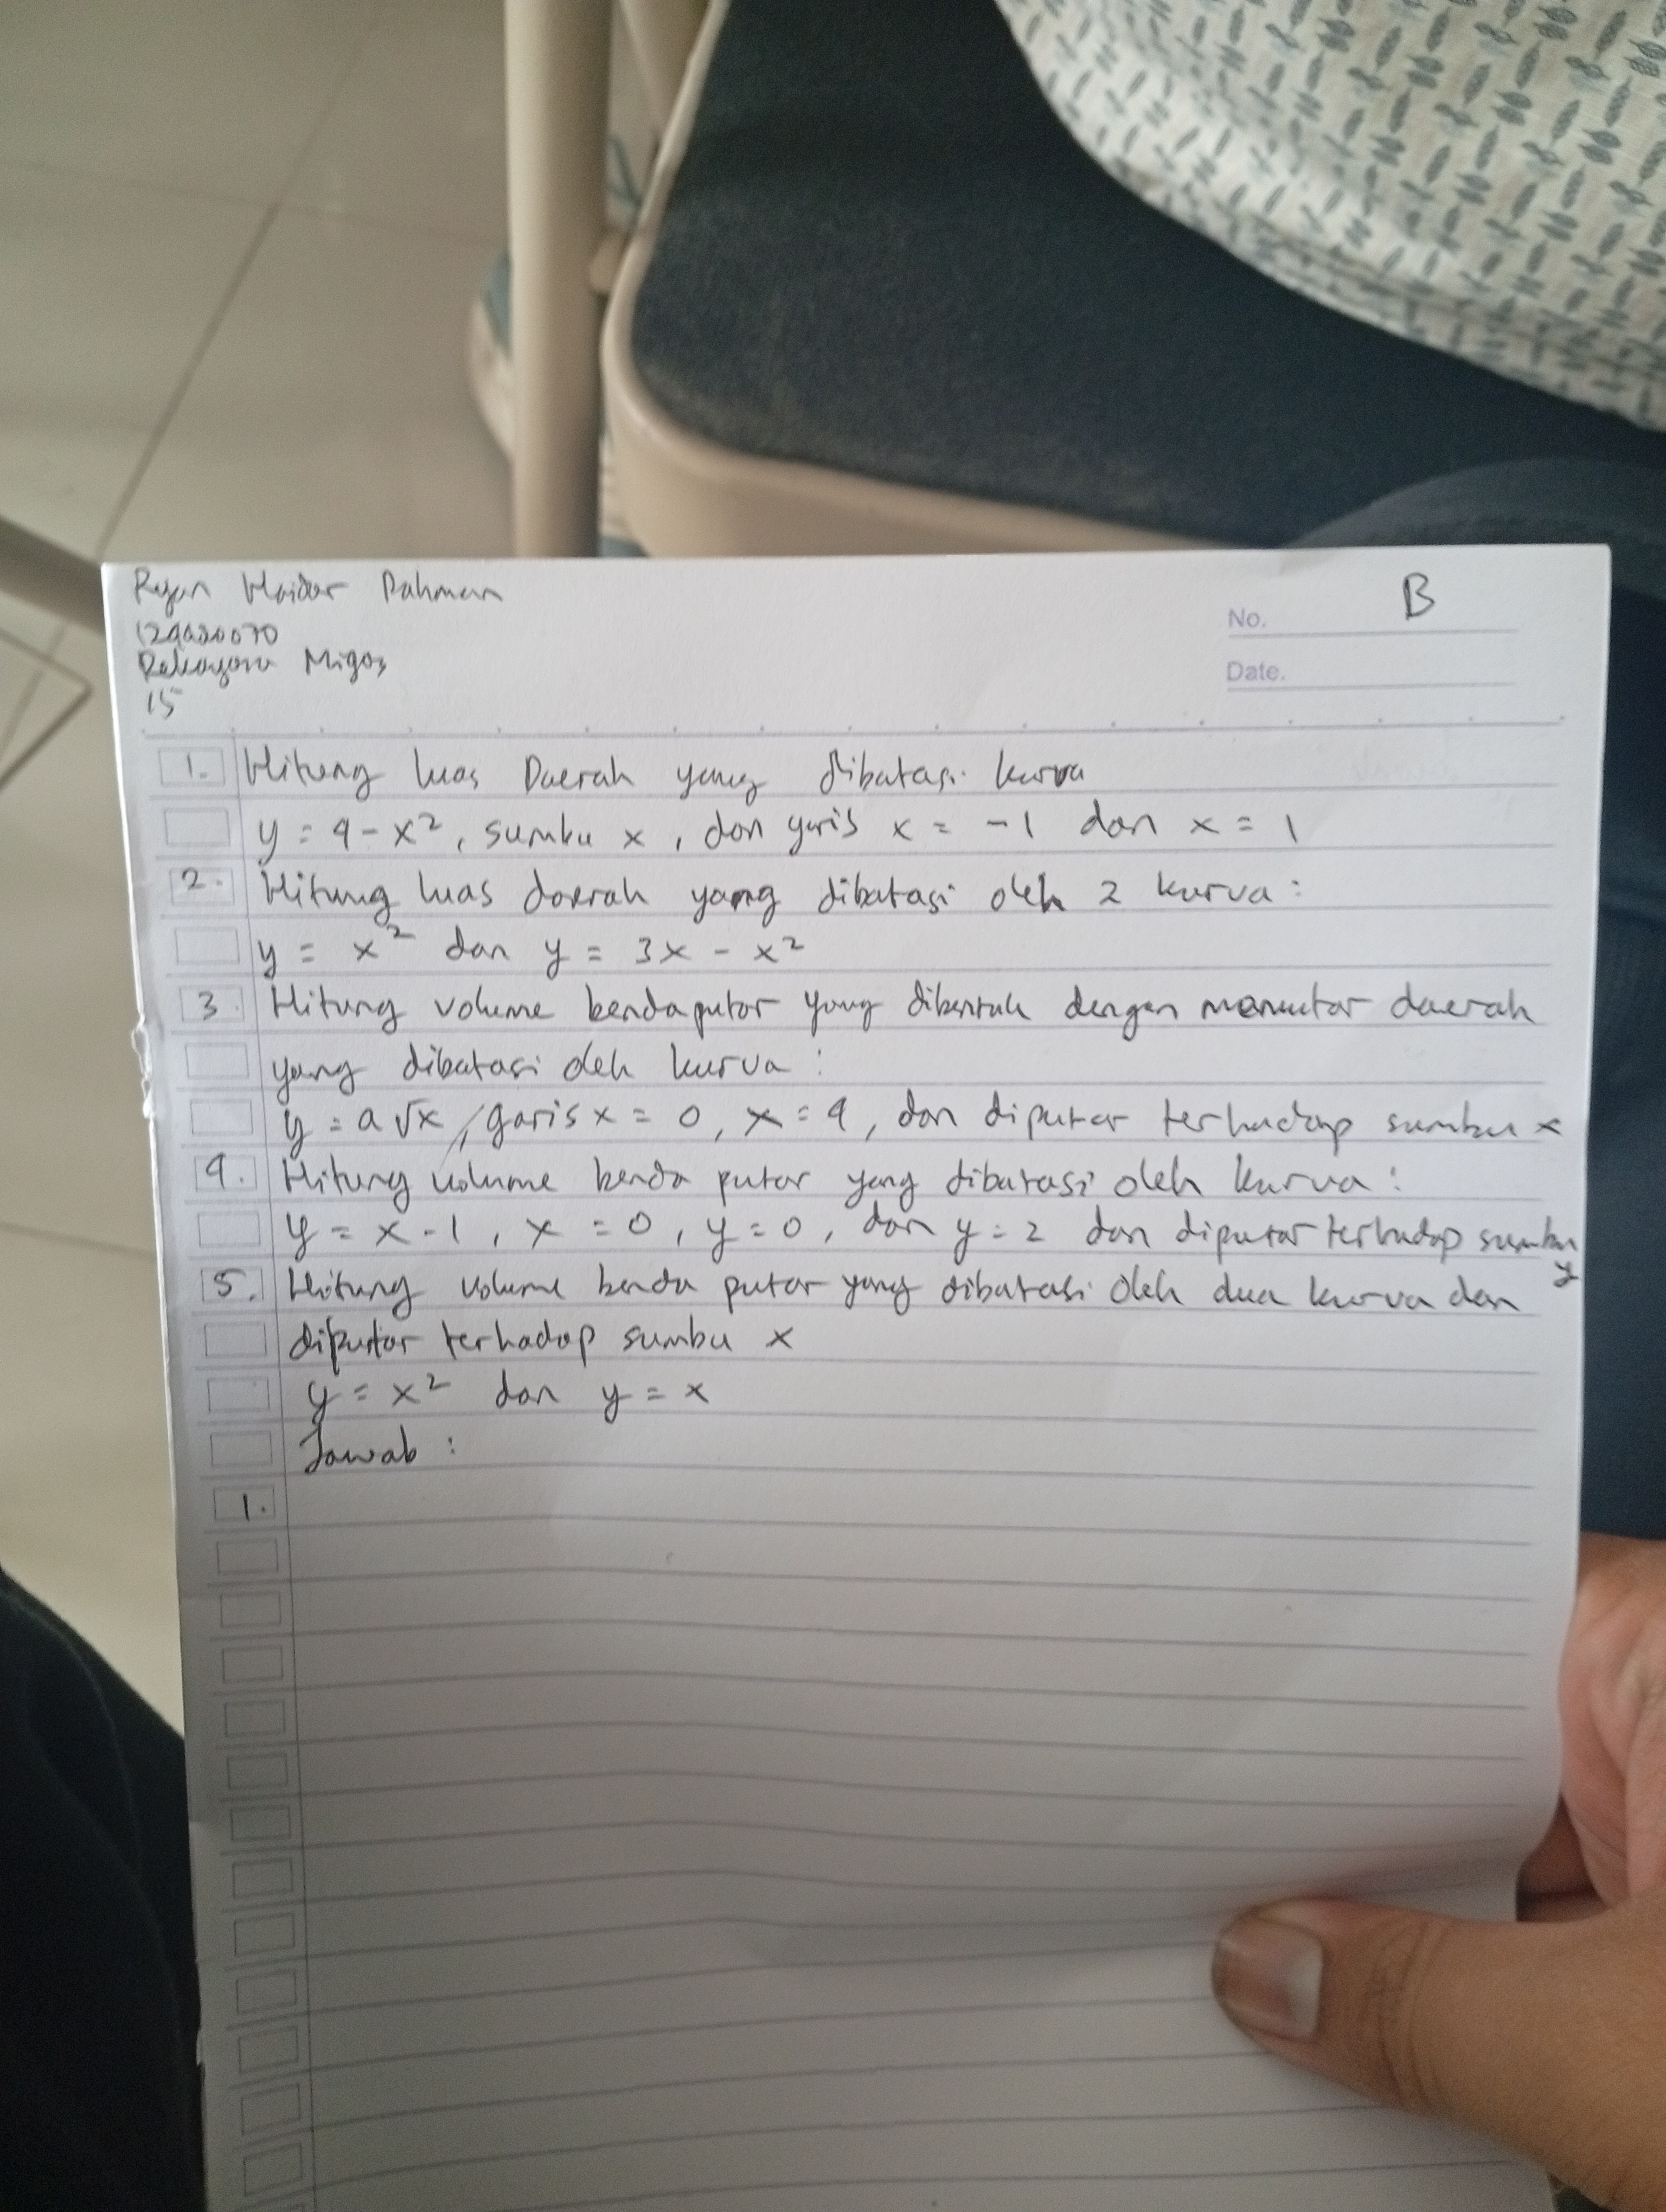 Ryan Haidar Rahman
Rekayasa Migas
15
B
No.
Date.
1. Hitung luas Daerah yang dibatasi kurva
y = 4 - x², sumbu x, dan garis x = -1 dan x = 1
2. Hitung luas daerah yang dibatasi oleh 2 kurva:
y = x² dan y = 3x - x²
3. Hitung volume benda putar yang dibentuk dengan memutar daerah
yang dibatasi oleh kurva:
y = a√x, garis x = 0, x = 4, dan diputar terhadap sumbu x
4. Hitung volume benda putar yang dibatasi oleh kurva:
y = x - 1, x = 0, y = 0, dan y = 2 dan diputar terhadap sumbu
y
5. Hitung volume benda putar yang dibatasi oleh dua kurva dan
diputar terhadap sumbu x
y = x² dan y = x
Jawab :
1.